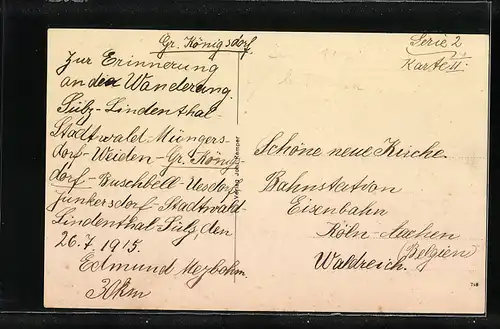 Gr. Königsdorf.
Zur Erinnerung
an die Wanderung.
Sülz-Lindenthal-
Stadtwald Müngers-
dorf-Weiden-Gr. Königs-
dorf-Buschbell-Uesdorf
Junkersdorf-Stadtwald-
Lindenthal-Sülz, den
26.7.1915.
Edmund
30km
Serie 2
Karte II.
Schöne neue Kirche.
Bahnstation
Eisenbahn
Köln-Aachen
(Belgien)
Waldreich.